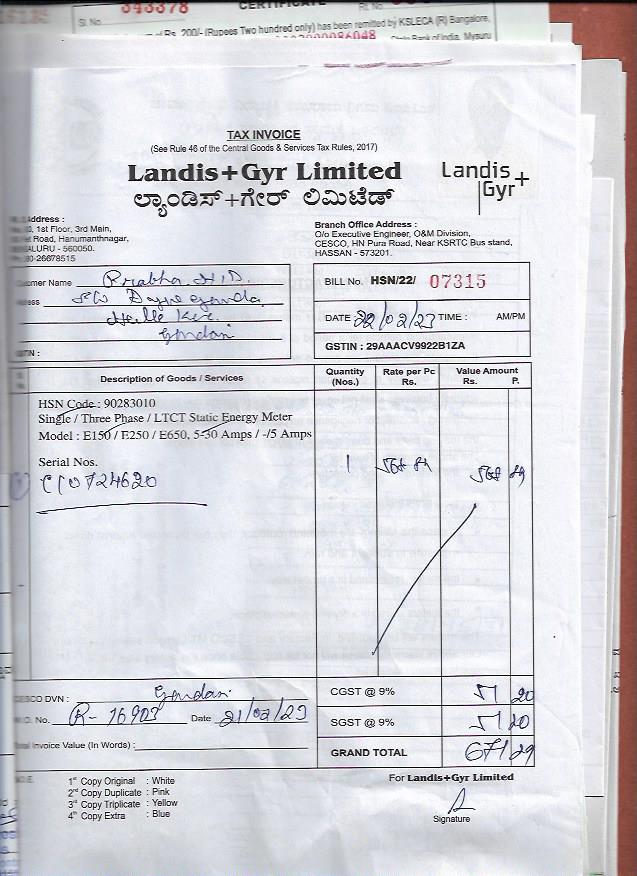 Sl. No. 343378
CERTIFICATE
Rs. 200/- (Rupees Two hundred only) has been remitted by KSLECA (R) Bangalore,
State Bank of India, Mysuru
TAX INVOICE
(See Rule 46 of the Central Goods & Services Tax Rules, 2017)
Landis+Gyr Limited
ಲ್ಯಾಂಡಿಸ್+ಗೇರ್ ಲಿಮಿಟೆಡ್
Landis+
Gyr
Address :
1st Floor, 3rd Main,
Road, Hanumanthnagar,
560050.
26678515
Branch Office Address :
O/o Executive Engineer, O&M Division,
CESCO, HN Pura Road, Near KSRTC Bus stand,
HASSAN - 573201.
Customer Name Prabha H.D.
BILL No. HSN/22/ 07315
DATE 22/02/23 TIME : AM/PM
GSTIN : 29AAACV9922B1ZA
Description of Goods / Services
Quantity (Nos.)
Rate per Pc Rs.
Value Amount Rs. P.
HSN Code : 90283010
Single / Three Phase / LTCT Static Energy Meter
Model : E150 / E250 / E650, 5-30 Amps / -/5 Amps
Serial Nos.
1
568 89
C10724620
CESCO DVN :
CGST @ 9% 51 20
No. R- 16903 Date 21/02/23
SGST @ 9% 51 20
Total Invoice Value (In Words) :
GRAND TOTAL 671 29
1st Copy Original : White
2nd Copy Duplicate : Pink
3rd Copy Triplicate : Yellow
4th Copy Extra : Blue
For Landis+Gyr Limited
Signature